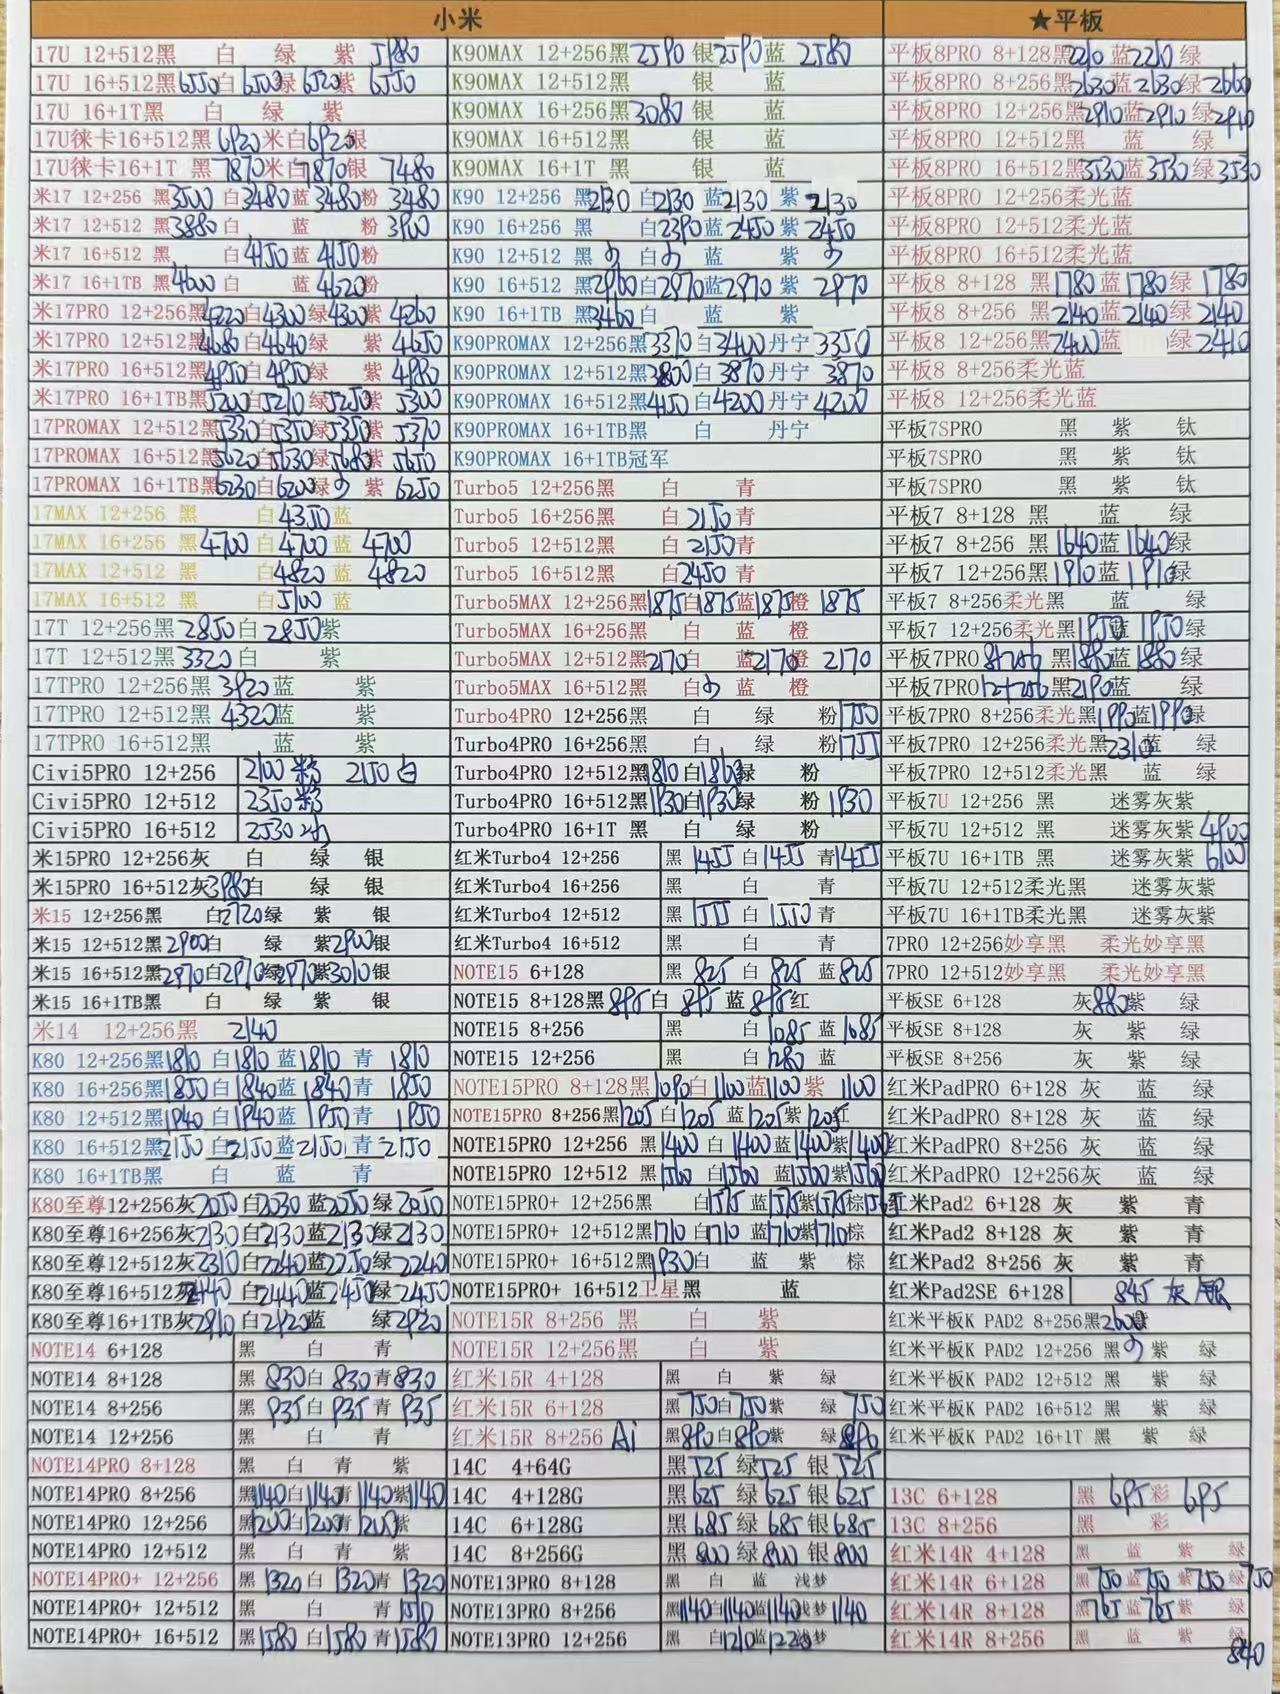 小米
★平板
17U 12+512黑 白 绿 紫 5980
17U 16+512黑6550白 6500绿 6520紫 6550
17U 16+1T黑 白 绿 紫
17U徕卡16+512黑 6920米白6920银
17U徕卡16+1T 黑 7870米白7870银 7480
米17 12+256 黑3500 白3480蓝 3480粉 3480
米17 12+512 黑3880 白 蓝 粉 3900
米17 16+512 黑 白4150蓝 4150粉
米17 16+1TB 黑4600 白 蓝 4620粉
米17PRO 12+256黑4220白4300绿4300紫 4260
米17PRO 12+512黑4680白4640绿 紫 4650
米17PRO 16+512黑4950白4950绿 紫 4980
米17PRO 16+1TB黑5200白5210绿5250紫 5300
17PROMAX 12+512黑5330白5350绿5350紫 5370
17PROMAX 16+512黑5620白5630绿5680紫 5650
17PROMAX 16+1TB黑6230白6200绿 紫 6250
17MAX 12+256 黑 白4350蓝
17MAX 16+256 黑4700 白4700 蓝 4700
17MAX 12+512 黑 白4820 蓝 4820
17MAX 16+512 黑 白5100 蓝
17T 12+256黑 2850白 2850紫
17T 12+512黑 3320白 紫
17TPRO 12+256黑 3920蓝 紫
17TPRO 12+512黑 4320蓝 紫
17TPRO 16+512黑 蓝 紫
Civi5PRO 12+256 2100 粉 2150 白
Civi5PRO 12+512 2350 粉
Civi5PRO 16+512 2530
米15PRO 12+256灰 白 绿 银
米15PRO 16+512灰3980白 绿 银
米15 12+256黑 白2720绿 紫 银
米15 12+512黑2900白 绿 紫2900银
米15 16+512黑2970白2970绿2970紫3010银
米15 16+1TB黑 白 绿 紫 银
米14 12+256黑 2140
K80 12+256黑1810 白1810 蓝1810 青 1810
K80 16+256黑1850白1840蓝1840青 1850
K80 12+512黑1940 白1940 蓝 1950青 1950
K80 16+512黑2150 白2150 蓝2150 青 2150
K80 16+1TB黑 白 蓝 青
K80至尊12+256灰2050白2030蓝2050绿 2050
K80至尊16+256灰2130白2130蓝2130绿2130
K80至尊12+512灰2310白2240蓝2250绿2240
K80至尊16+512灰2440 白2440蓝2450绿2450
K80至尊16+1TB灰2910白2920蓝 绿2920
NOTE14 6+128 黑 白 青
NOTE14 8+128 黑 830白 830青830
NOTE14 8+256 黑 935白 935青 935
NOTE14 12+256 黑 白 青
NOTE14PRO 8+128 黑 白 青 紫
NOTE14PRO 8+256 黑1140白1140青1140紫1140
NOTE14PRO 12+256 黑1200白1200青1205紫
NOTE14PRO 12+512 黑 白 青 紫
NOTE14PRO+ 12+256 黑 1320白 1320青 1320
NOTE14PRO+ 12+512 黑 白 青1510
NOTE14PRO+ 16+512 黑1580 白1580 青1580
K90MAX 12+256黑2590 银2590蓝 2580
K90MAX 12+512黑 银 蓝
K90MAX 16+256黑3080 银 蓝
K90MAX 16+512黑 银 蓝
K90MAX 16+1T 黑 银 蓝
K90 12+256 黑2130 白2130 蓝2130 紫 2130
K90 16+256 黑 白2390蓝 2450紫 2450
K90 12+512 黑 白 蓝 紫
K90 16+512 黑2960白2970蓝2970 紫 2970
K90 16+1TB 黑3460白 蓝 紫
K90PROMAX 12+256黑3370白3400丹宁 3350
K90PROMAX 12+512黑3800白3870丹宁 3870
K90PROMAX 16+512黑4150白4200丹宁 4200
K90PROMAX 16+1TB黑 白 丹宁
K90PROMAX 16+1TB冠军
Turbo5 12+256黑 白 青
Turbo5 16+256黑 白2150青
Turbo5 12+512黑 白2150青
Turbo5 16+512黑 白2450 青
Turbo5MAX 12+256黑1875白1875蓝1875橙 1875
Turbo5MAX 16+256黑 白 蓝 橙
Turbo5MAX 12+512黑2170 白 蓝2170橙 2170
Turbo5MAX 16+512黑 白 蓝 橙
Turbo4PRO 12+256黑 白 绿 粉1750
Turbo4PRO 16+256黑 白 绿 粉1755
Turbo4PRO 12+512黑1810白1860绿 粉
Turbo4PRO 16+512黑1930白1930绿 粉 1930
Turbo4PRO 16+1T 黑 白 绿 粉
红米Turbo4 12+256 黑 1455 白1455 青1455
红米Turbo4 16+256 黑 白 青
红米Turbo4 12+512 黑 1555 白 1550青
红米Turbo4 16+512 黑 白 青
NOTE15 6+128 黑 825 白 825 蓝825
NOTE15 8+128黑895白 895 蓝895红
NOTE15 8+256 黑 白1085蓝1085
NOTE15 12+256 黑 白1280 蓝
NOTE15PRO 8+128黑1090白1100蓝1100紫 1100
NOTE15PRO 8+256黑1205 白1205 蓝1205紫1205红
NOTE15PRO 12+256 黑1400 白1400蓝1400紫1400
NOTE15PRO 12+512 黑1560 白1560 蓝1560紫1560
NOTE15PRO+ 12+256黑 白1515蓝1515紫1515棕
NOTE15PRO+ 12+512黑1710白1710蓝1710紫1710棕
NOTE15PRO+ 16+512黑1930白 蓝 紫 棕
NOTE15PRO+ 16+512卫星黑 蓝
NOTE15R 8+256 黑 白 紫
NOTE15R 12+256黑 白 紫
红米15R 4+128 黑 白 紫 绿
红米15R 6+128 黑750白750紫 绿750
红米15R 8+256 Ai 黑890白890紫 绿890
14C 4+64G 黑525 绿525 银 525
14C 4+128G 黑 625 绿 625 银 625
14C 6+128G 黑685绿 685银685
14C 8+256G 黑800 绿800 银800
NOTE13PRO 8+128 黑 白 蓝 浅梦
NOTE13PRO 8+256 黑1140白1140蓝1140浅梦1140
NOTE13PRO 12+256 黑 白1210蓝1220浅梦
平板8PRO 8+128黑2210 蓝2210 绿
平板8PRO 8+256黑2630蓝2630绿 2660
平板8PRO 12+256黑2910蓝2910绿2910
平板8PRO 12+512黑 蓝 绿
平板8PRO 16+512黑3530蓝3530绿3530
平板8PRO 12+256柔光蓝
平板8PRO 12+512柔光蓝
平板8PRO 16+512柔光蓝
平板8 8+128 黑1780蓝1780绿 1780
平板8 8+256 黑2140蓝2140绿2140
平板8 12+256黑2400蓝 绿2410
平板8 8+256柔光蓝
平板8 12+256柔光蓝
平板7SPRO 黑 紫 钛
平板7SPRO 黑 紫 钛
平板7SPRO 黑 紫 钛
平板7 8+128 黑 蓝 绿
平板7 8+256 黑1640蓝1640绿
平板7 12+256黑1910蓝1910绿
平板7 8+256柔光黑 蓝 绿
平板7 12+256柔光黑1950蓝 1950绿
平板7PRO 8+256 黑1880蓝1880绿
平板7PRO 12+256 黑2190蓝 绿
平板7PRO 8+256柔光黑1990蓝1990绿
平板7PRO 12+256柔光黑2310蓝 绿
平板7PRO 12+512柔光黑 蓝 绿
平板7U 12+256 黑 迷雾灰紫
平板7U 12+512 黑 迷雾灰紫 4900
平板7U 16+1TB 黑 迷雾灰紫 6100
平板7U 12+512柔光黑 迷雾灰紫
平板7U 16+1TB柔光黑 迷雾灰紫
7PRO 12+256妙享黑 柔光妙享黑
7PRO 12+512妙享黑 柔光妙享黑
平板SE 6+128 灰880紫 绿
平板SE 8+128 灰 紫 绿
平板SE 8+256 灰 紫 绿
红米PadPRO 6+128 灰 蓝 绿
红米PadPRO 8+128 灰 蓝 绿
红米PadPRO 8+256 灰 蓝 绿
红米PadPRO 12+256灰 蓝 绿
红米Pad2 6+128 灰 紫 青
红米Pad2 8+128 灰 紫 青
红米Pad2 8+256 灰 紫 青
红米Pad2SE 6+128 845 灰 银
红米平板K PAD2 8+256黑2600紫
红米平板K PAD2 12+256 黑 紫 绿
红米平板K PAD2 12+512 黑 紫 绿
红米平板K PAD2 16+512 黑 紫 绿
红米平板K PAD2 16+1T 黑 紫 绿
13C 6+128 黑 695彩 695
13C 8+256 黑 彩
红米14R 4+128 黑 蓝 紫 绿
红米14R 6+128 黑750蓝750紫750绿750
红米14R 8+128 黑765蓝765紫 绿
红米14R 8+256 黑 蓝 紫 绿
840